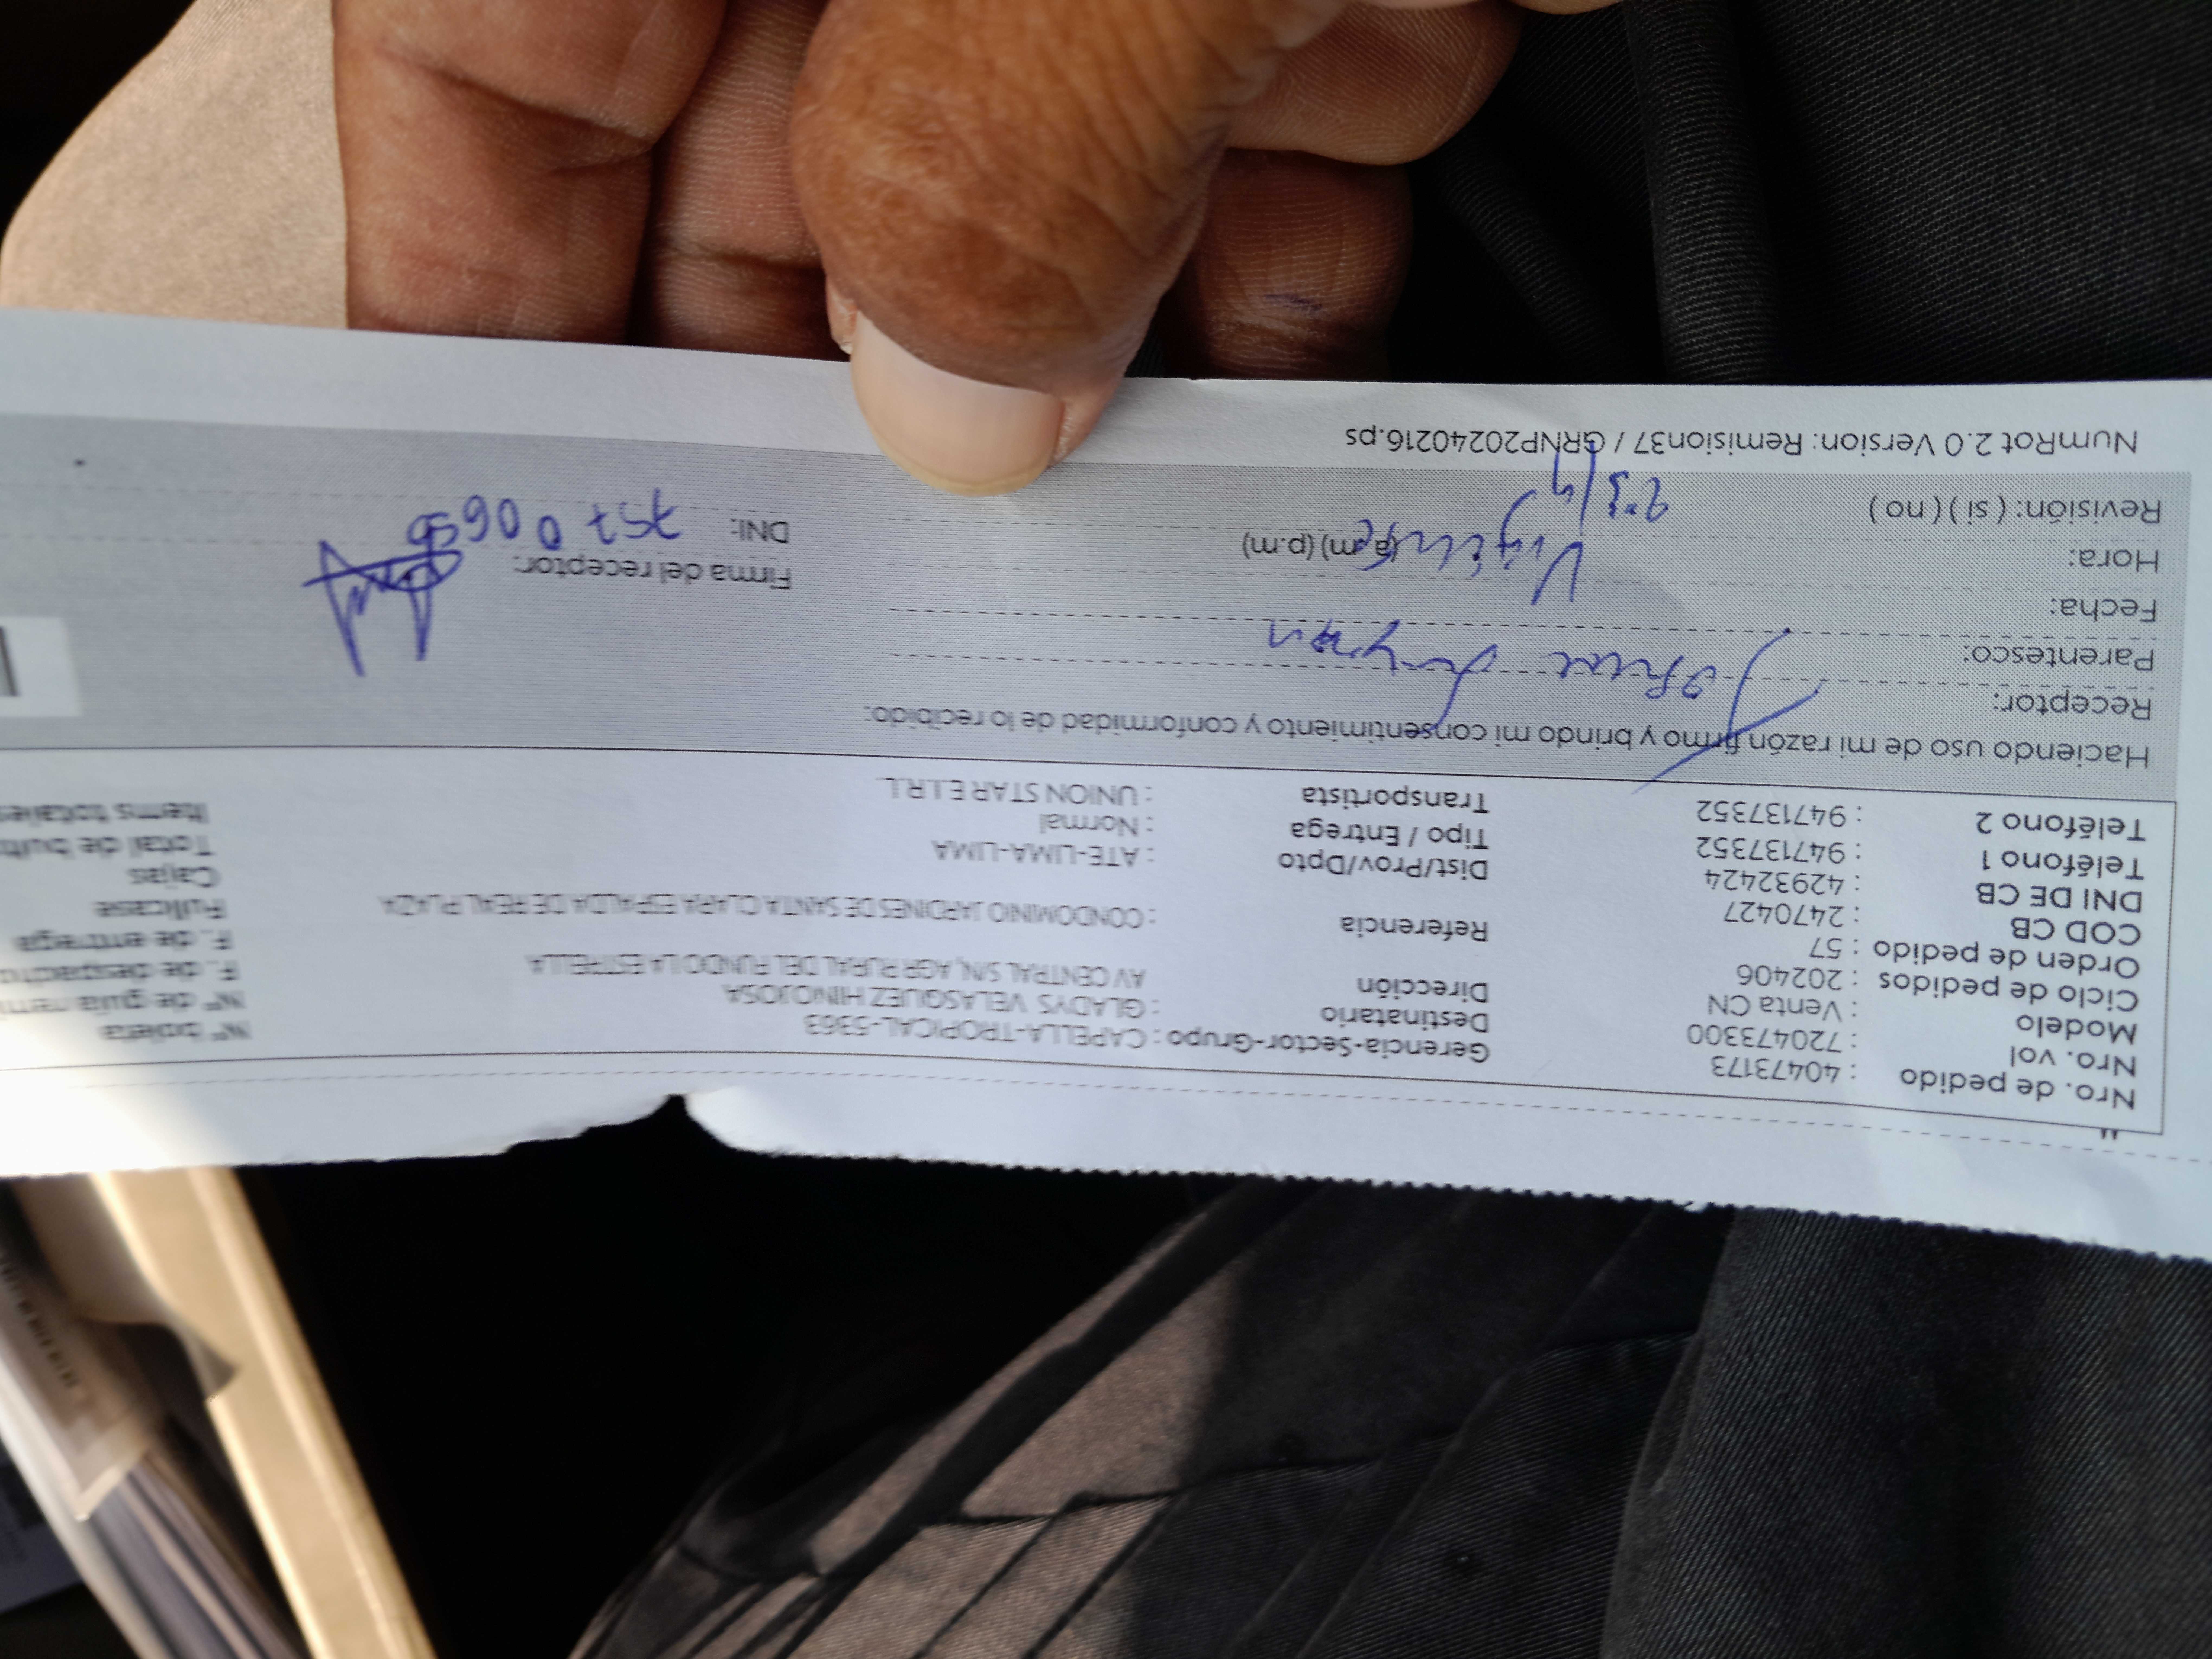 Nro. de pedido : 40473173
Nro. vol : 720473300
Modelo : Venta CN
Ciclo de pedidos : 202406
Orden de pedido : 57
COD CB : 2470427
DNI DE CB : 42932424
Teléfono 1 : 947137352
Teléfono 2 : 947137352
Gerencia-Sector-Grupo : CAPELLA-TROPICAL-5363
Destinatario : GLADYS VELASQUEZ HINOJOSA
Dirección AV CENTRAL S/N, AGR RURAL DEL FUNDO LA ESTRELLA
Referencia : CONDOMINIO JARDINES DE SANTA CLARA ESPALDA DE REAL PLAZA
Dist/Prov/Dpto : ATE-LIMA-LIMA
Tipo / Entrega : Normal
Transportista : UNION STAR E.I.R.L.
N° boleta
N° de guía remi
F. de despacho
F. de entrega
Fullcase
Cajas
Total de bult
Items totale
Haciendo uso de mi razón firmo y brindo mi consentimiento y conformidad de lo recibido:
Receptor:
Parentesco:
Fecha:
Hora: (a.m) (p.m)
Revisión: ( si ) ( no )
Firma del receptor:
DNI:
NumRot 2.0 Version: Remision37 / GRNP20240216.ps